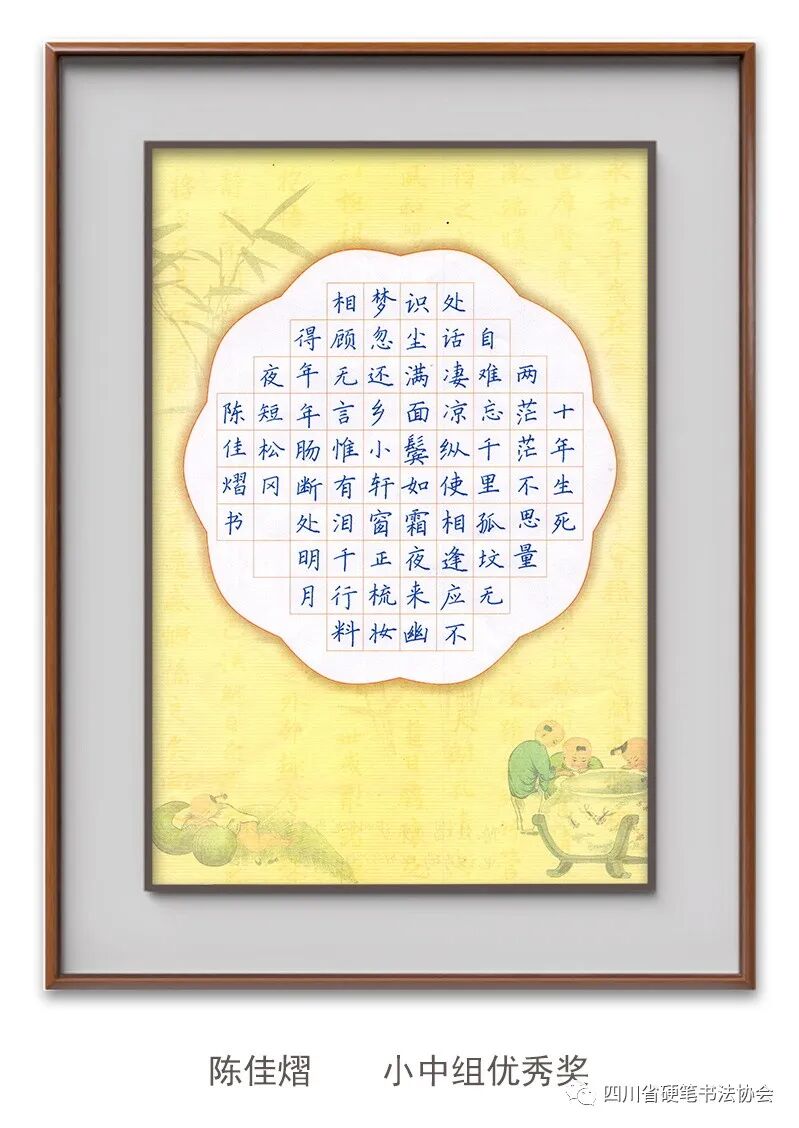 十年生死
两茫茫不思量
自难忘千里孤坟无
处话凄凉纵使相逢应不
识尘满面鬓如霜夜来幽
梦忽还乡小轩窗正梳妆
相顾无言惟有泪千行料
得年年肠断处明月
夜短松冈
陈佳熠书
陈佳熠 小中组优秀奖
四川省硬笔书法协会